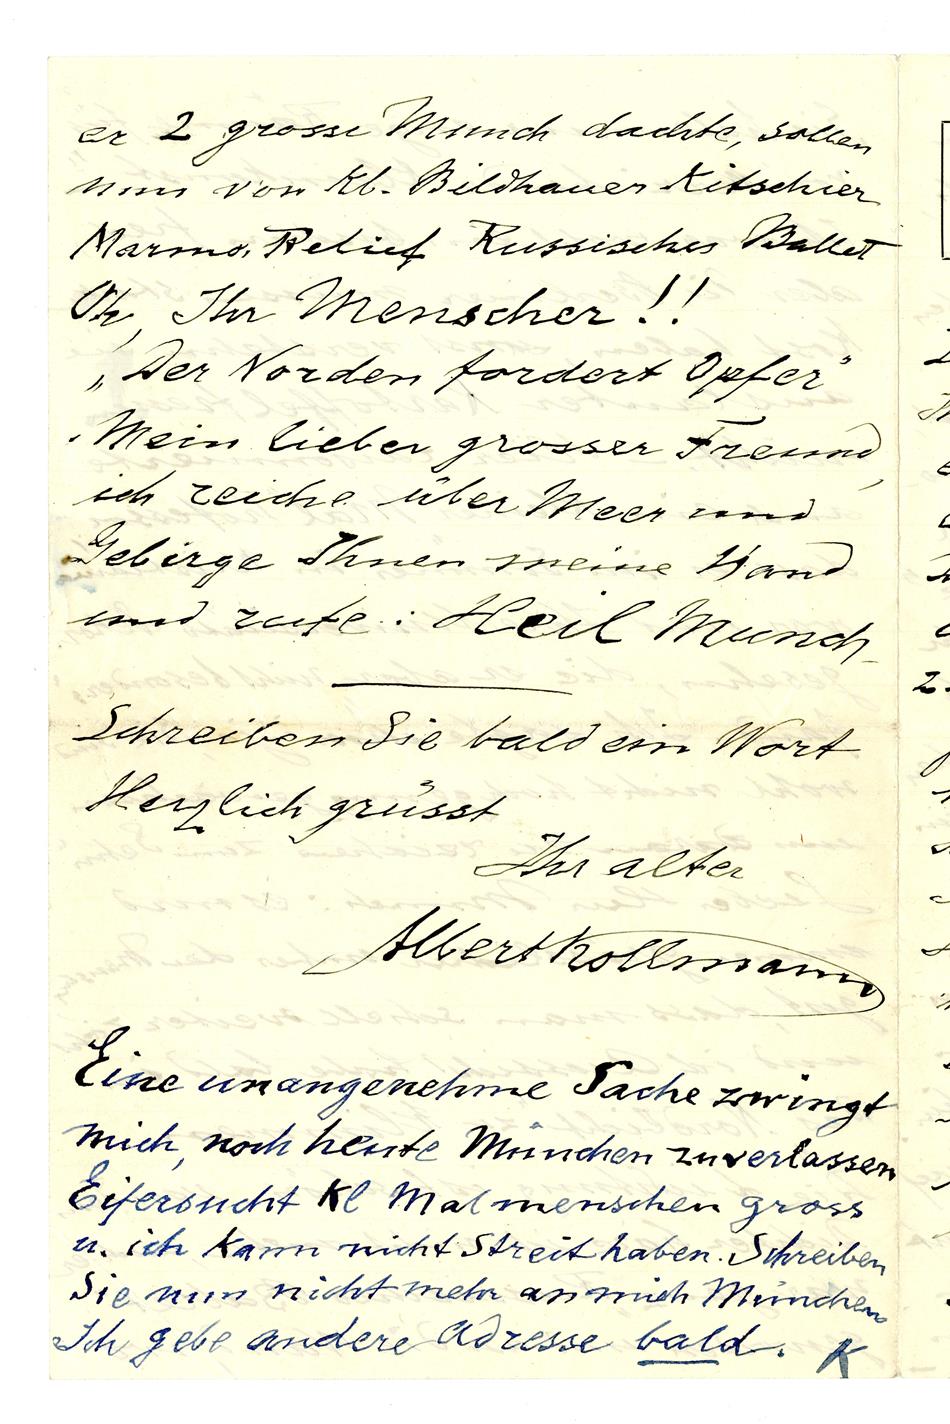 er 2 grosse Munch dachte, sollen
nun von Kl. Bildhauer Kitschier
Marmo, Relief Russisches Ballet
Oh, Ihr Menscher!!
„Der Norden fordert Opfer"
Mein lieber grosser Freund,
ich reiche über Meer und
Gebirge Ihnen meine Hand
und rufe: Heil Munch
Schreiben Sie bald ein Wort
Herzlich grüsst
Ihr alter
Albert Kollmann
Eine unangenehme Sache zwingt
mich, noch heute München zu verlassen
Eifersucht Kl Malmenschen gross
u. ich kann nicht Streit haben. Schreiben
Sie nun nicht mehr an mich München
Ich gebe andere Adresse bald. K